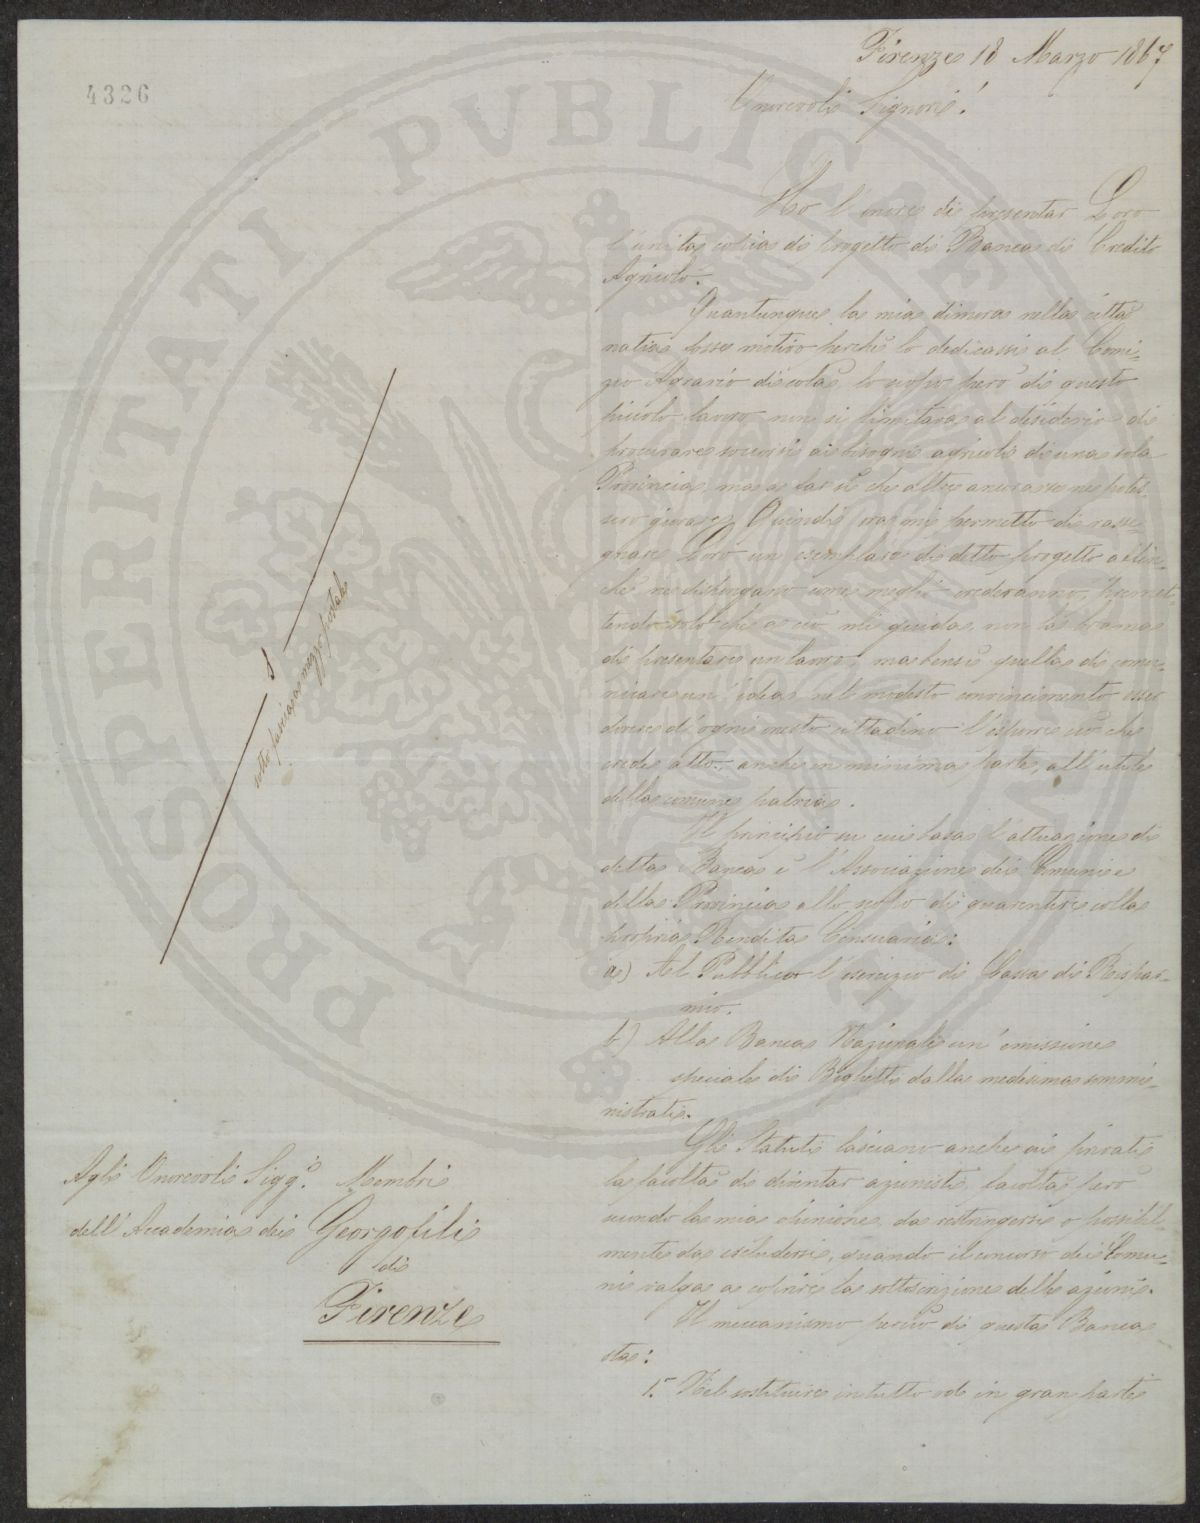 Firenze 18 Marzo 1867
4326
Onorevoli Signori!
Ho l'onore di presentar Loro
l'unita copia di progetto di Banca di Credito
Agricolo.
Quantunque la mia dimora nella città
natia fosse motivo perchè lo dedicassi al Comi-
zio Agrario di colà, lo scopo però di questo
piccolo lavoro non si limitava al desiderio di
procurare soccorsi ai bisogni agricoli di una sola
Provincia, ma a far sì che altre ancora se ne potes-
sero giovare. Quindi ora mi permetto di rasse-
gnare Loro un esemplare di detto progetto affin-
chè ne dispongano come meglio crederanno, premet-
tendo solo che a ciò mi guida, non la brama
di presentare un lavoro, ma bensì quella di comu-
nicare un'idea nel modesto convincimento esser
dovere d'ogni onesto cittadino l'esporre ciò che
crede atto, anche in minima parte, all'utile
della comune patria.
Il principio su cui basa l'attuazione di
detta Banca è l'Associazione dei Comuni e
della Provincia allo scopo di guarentire colla
propria Rendita Censuaria:
a) Al Pubblico l'esercizio di Cassa di Rispar-
mio.
b) Alla Banca Nazionale un'emissione
speciale di Biglietti dalla medesima sommi-
nistrati.
Gli Statuti lasciano anche ai privati
la facoltà di diventar azionisti, facoltà però
secondo la mia opinione, da restringersi o possibil-
mente da escludersi, quando il concorso dei Comu-
ni valga a coprire la sottoscrizione delle azioni.
Il meccanismo poi di questa Banca
sta:
1.° Nel costituire in tutto od in gran parte
sotto fascia a mezzo postale
Agli Onorevoli Sigg.i Membri
dell'Accademia dei Georgofili
di
Firenze
PROSPERITATI PVBLICAE